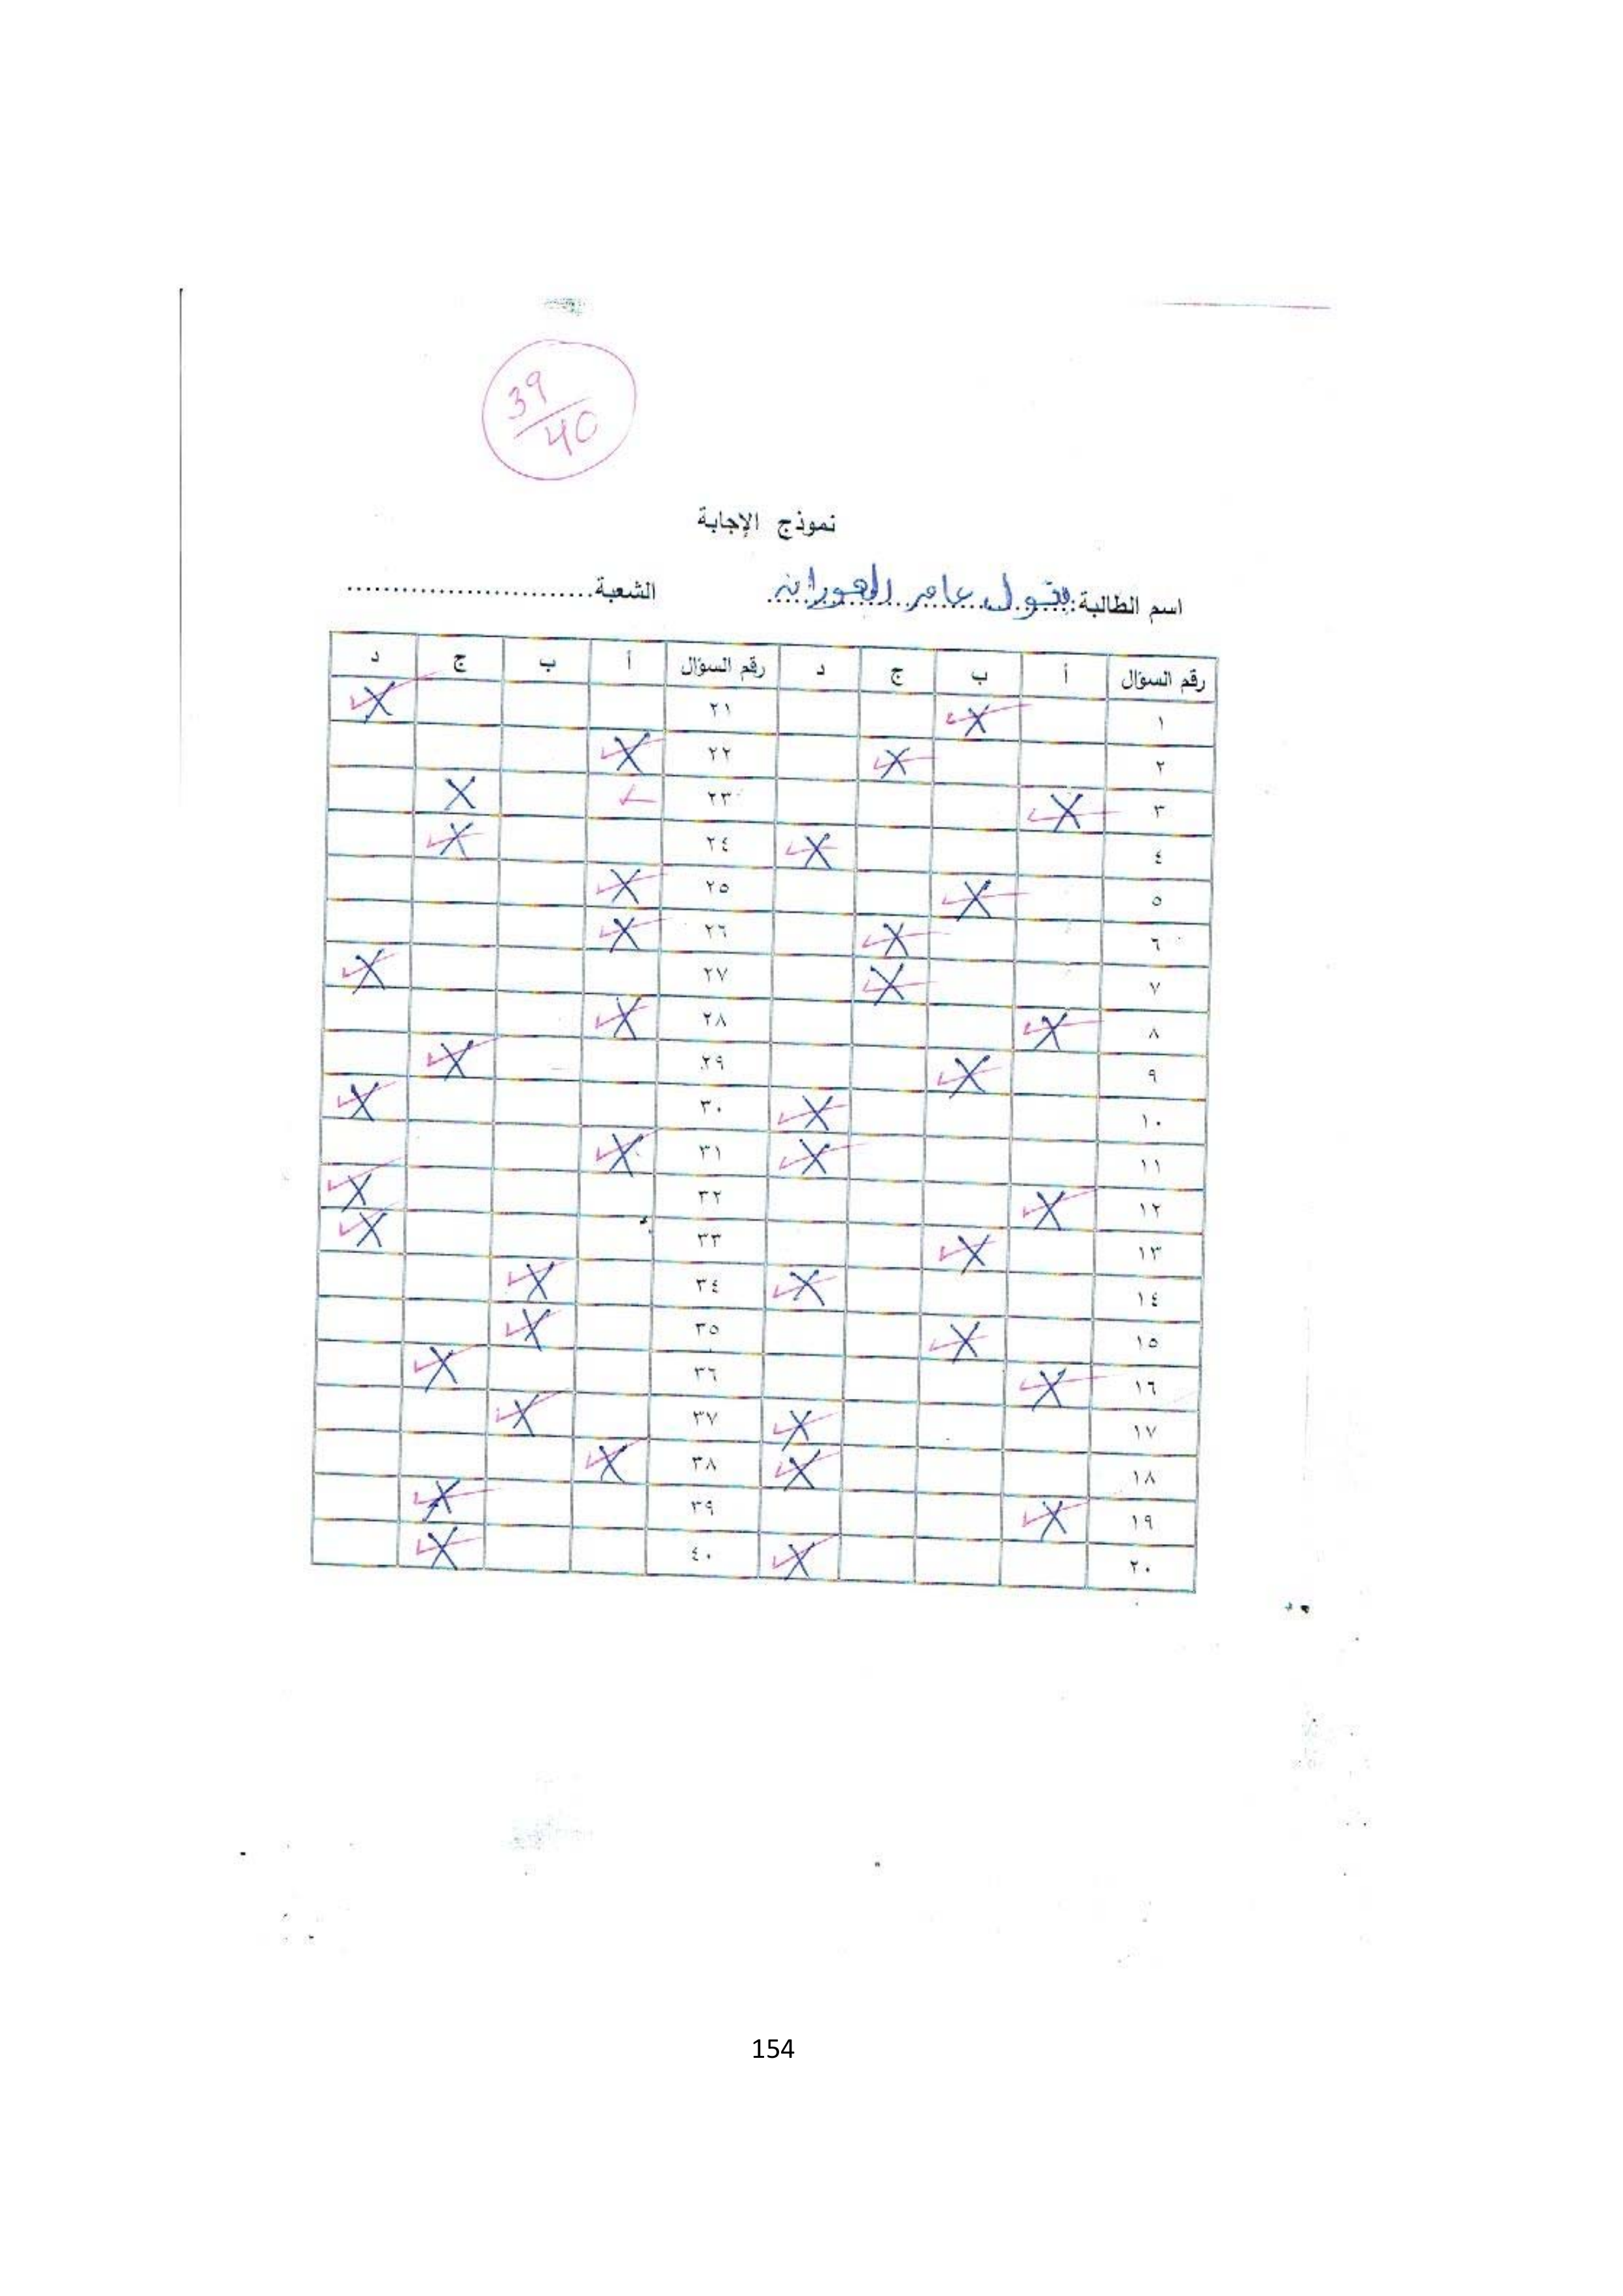 39
40
نموذج الإجابة
اسم الطالبة: بتول عامر الهوراين الشعبة
رقم السؤال أ ب ج د رقم السؤال أ ب ج د
١ X ٢١ X
٢ X ٢٢ X
٣ X ٢٣ X
٤ X ٢٤ X
٥ X ٢٥ X
٦ X ٢٦ X
٧ X ٢٧ X
٨ X ٢٨ X
٩ X ٢٩ X
١٠ X ٣٠ X
١١ X ٣١ X
١٢ X ٣٢ X
١٣ X ٣٣ X
١٤ X ٣٤ X
١٥ X ٣٥ X
١٦ X ٣٦ X
١٧ X ٣٧ X
١٨ X ٣٨ X
١٩ X ٣٩ X
٢٠ X ٤٠ X
154